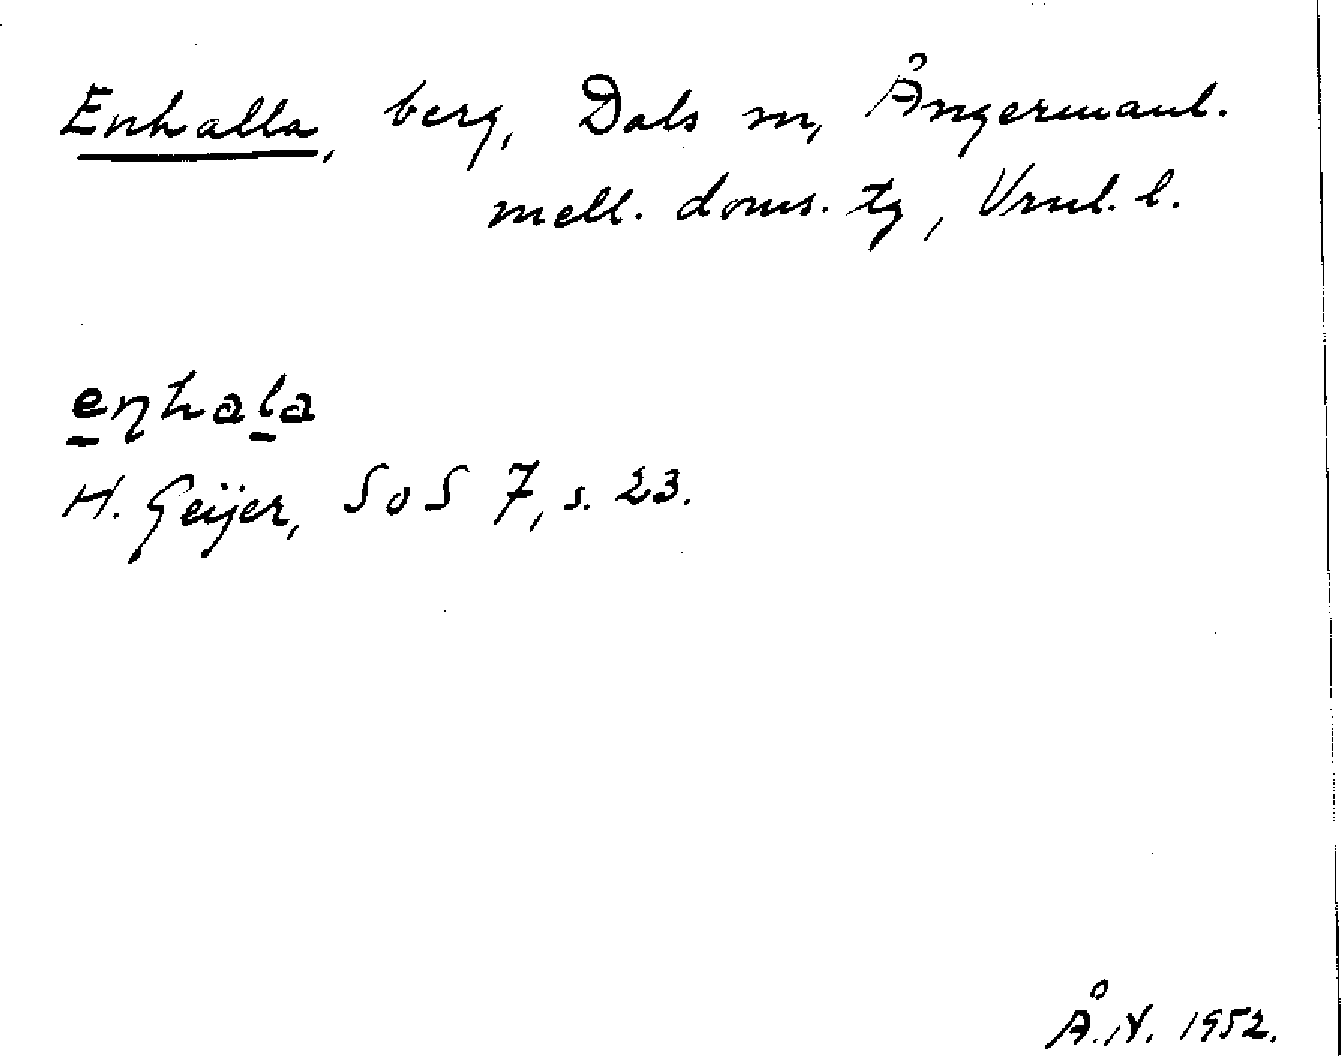 Enhalla, berg, Dals sn, Ångermanl.
mell. doms. tg, Vrnl. l.
enhala
H. Geijer, SoS 7, s. 23.
Å.N. 1952.